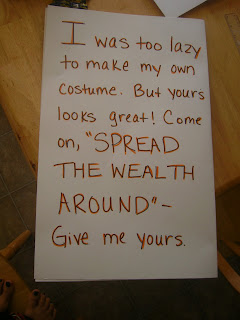 I was too lazy
to make my own
costume. But yours
looks great! Come
on, "SPREAD
THE WEALTH
AROUND"-
Give me yours.